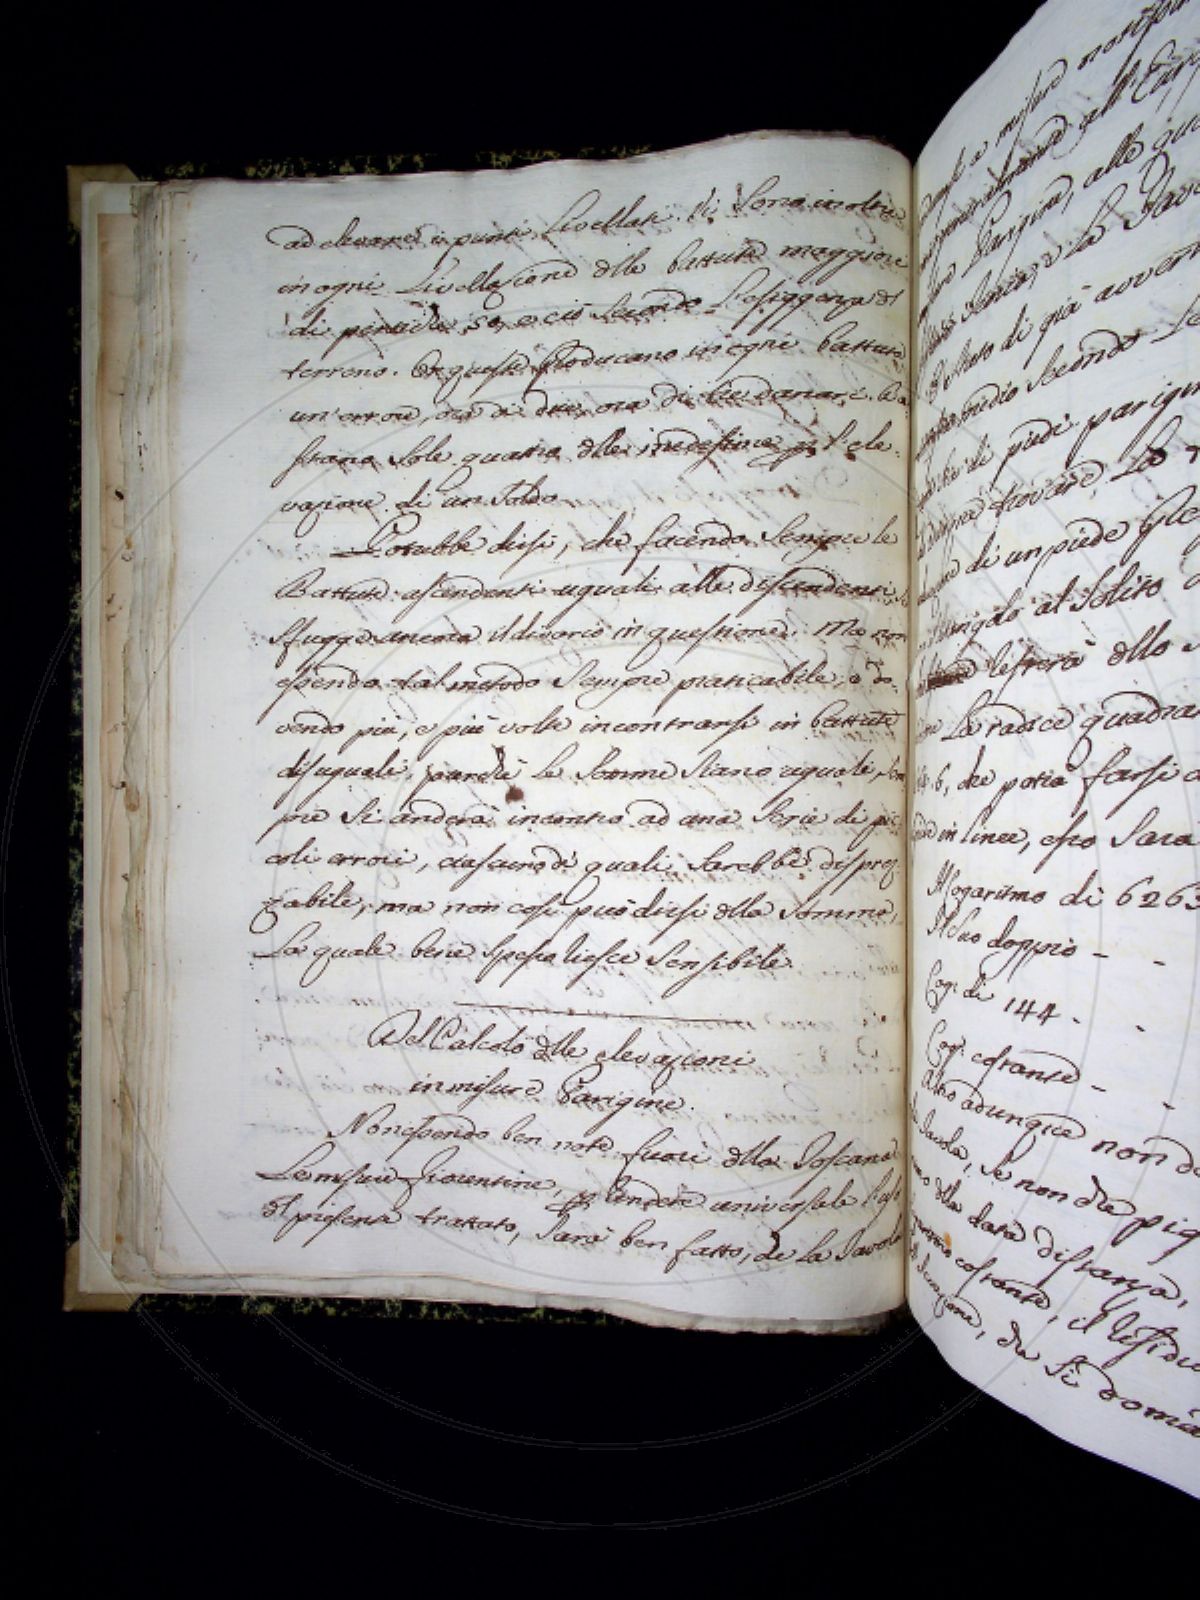 ad elevare i punti livellati. Vi sono inoltre
in ogni Livellazione delle battute maggiori
di pertiche 50, e ciò secondo l'esiggenza del
terreno. Or queste producano in ogni battuta
un'errore, ora di due, ora di tre danari. Ba-
stano sole quattro delle medesime per l'ele-
vazione di un soldo.
Potrebbe dirsi, che facendo sempre le
Battute ascendenti uguali alle discendenti si
sfugge ancora il divario in questione. Ma non
essendo tal metodo sempre praticabile, e do-
vendo più, e più volte incontrarsi in battute
disuguali, purchè le somme siano uguali, sem-
pre si anderà incontro ad una serie di pic-
coli errori, ciascuno de' quali sarebbe disprez-
zabile, ma non così può dirsi della somma,
La quale bene spesso riesce sensibile.
Del Calcolo delle elevazioni
in misure Parigine.
Non essendo ben note fuori della Toscana
Le misure Fiorentine, per rendere universale l'uso
del presente trattato, sarà ben fatto, che la Tavola
alle
La Tav
di già avver
medio secondo
di piedi parigi
trovare La
di un piede
al solito
resterà dello
La radice quadra
6, che potrà farsi
in linee, esso sarà
Il logaritmo di 6263
Il suo doppio - -
Log. di 144 - -
Log. costante - -
Altro adunque non de
Tavola, se non che pig
della data distanza,
costante, il residu
che si doma